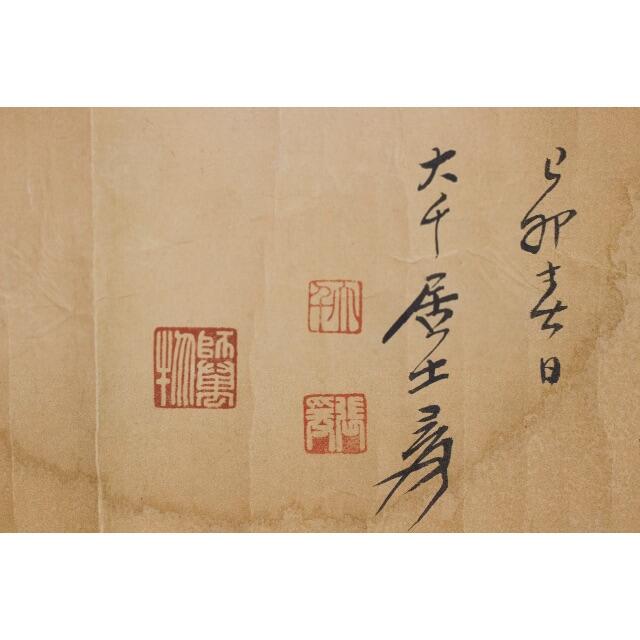 己卯春日
大千居士爰
大千
張爰
師萬物